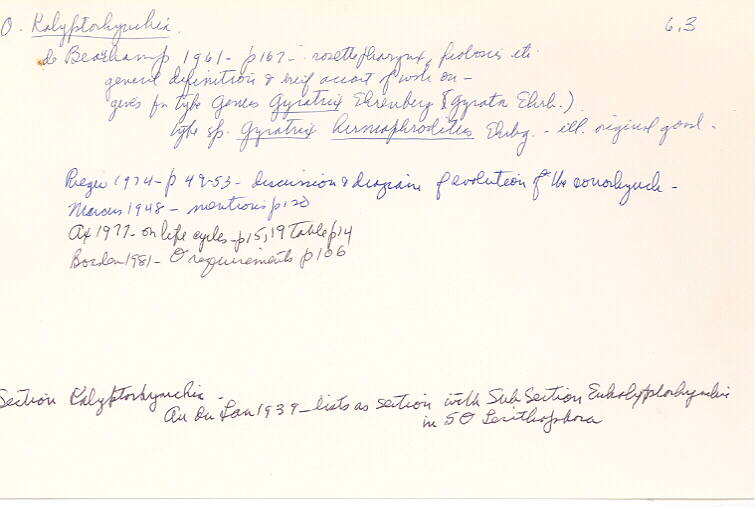 O. Kalyptorhynchia 6,3
de Beauchamp 1961 - p167 - rosette pharynx, proboscis etc.
general definition & brief account of work on -
gives fn type Genus Gyratrix Ehrenberg & (Gyrata Ehrb.)
type sp. Gyratrix hermaphroditus Ehrbg. - ill. original good.
Rieger 1974 - p 49-53 - discussion & diagram of evolution of the conorhynch -
Marcus 1948 - mentions p120
Ax 1977 - on life cycles - p15, 19 Table p14
Boaden 1981 - O requirements p106
Section Kalyptorhynchia -
An Der Lan 1939 - lists as section with Sub Section Eukalyptorhynchia
in SO Lecithophora